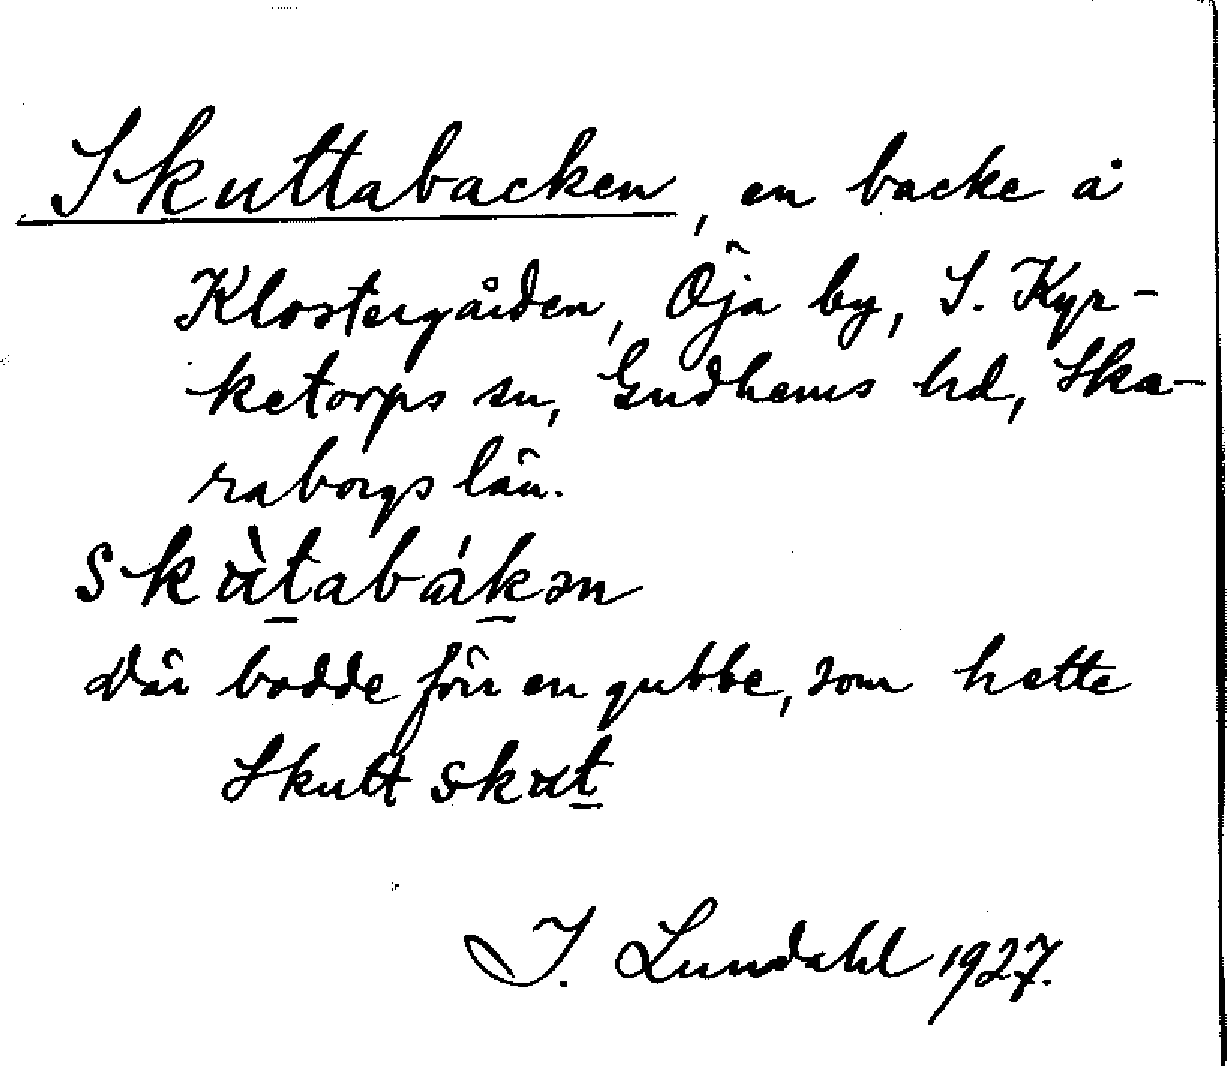 Skuttabacken, en backe å
Klostergården, Öja by, S. Kyr-
ketorps sn, Gudhems hd, Ska-
raborgs län.
skùt̠abák̠ən
Där bodde förr en gubbe, som hette
Skutt skut̠
I. Lundahl 1927.